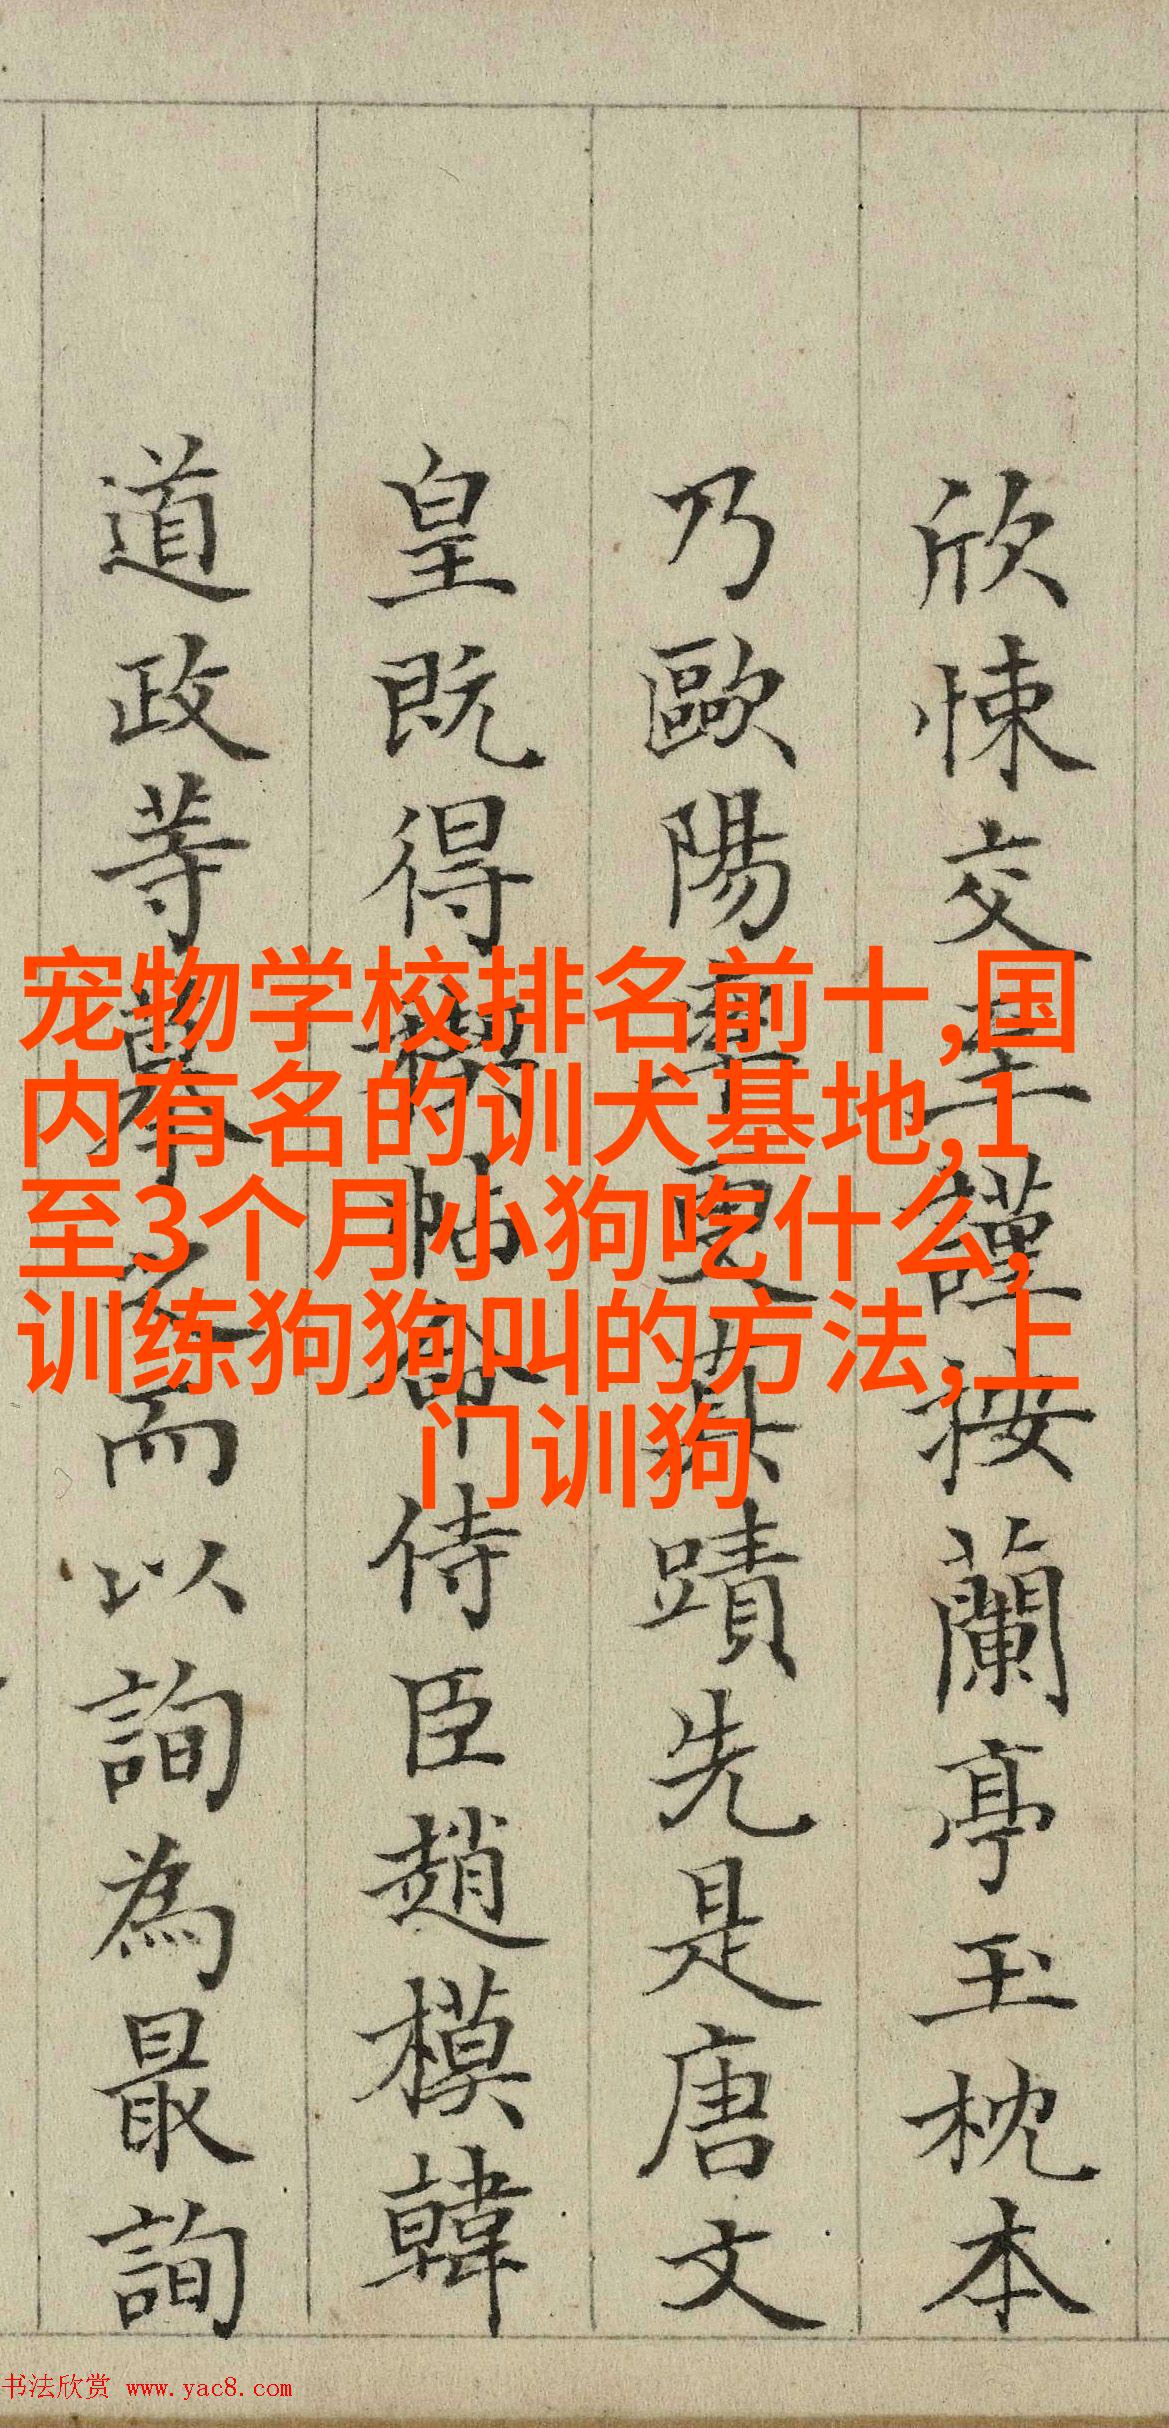 欣悚交至謹按蘭亭玉枕本
乃歐陽率更真蹟先是唐文
皇既得禊帖命侍臣趙模韓
道政等摹之而以詢為最詢
宠物学校排名前十,国
内有名的训犬基地,1
至3个月小狗吃什么,
训练狗狗叫的方法,上
门训狗
书法欣赏 www.yac8.com